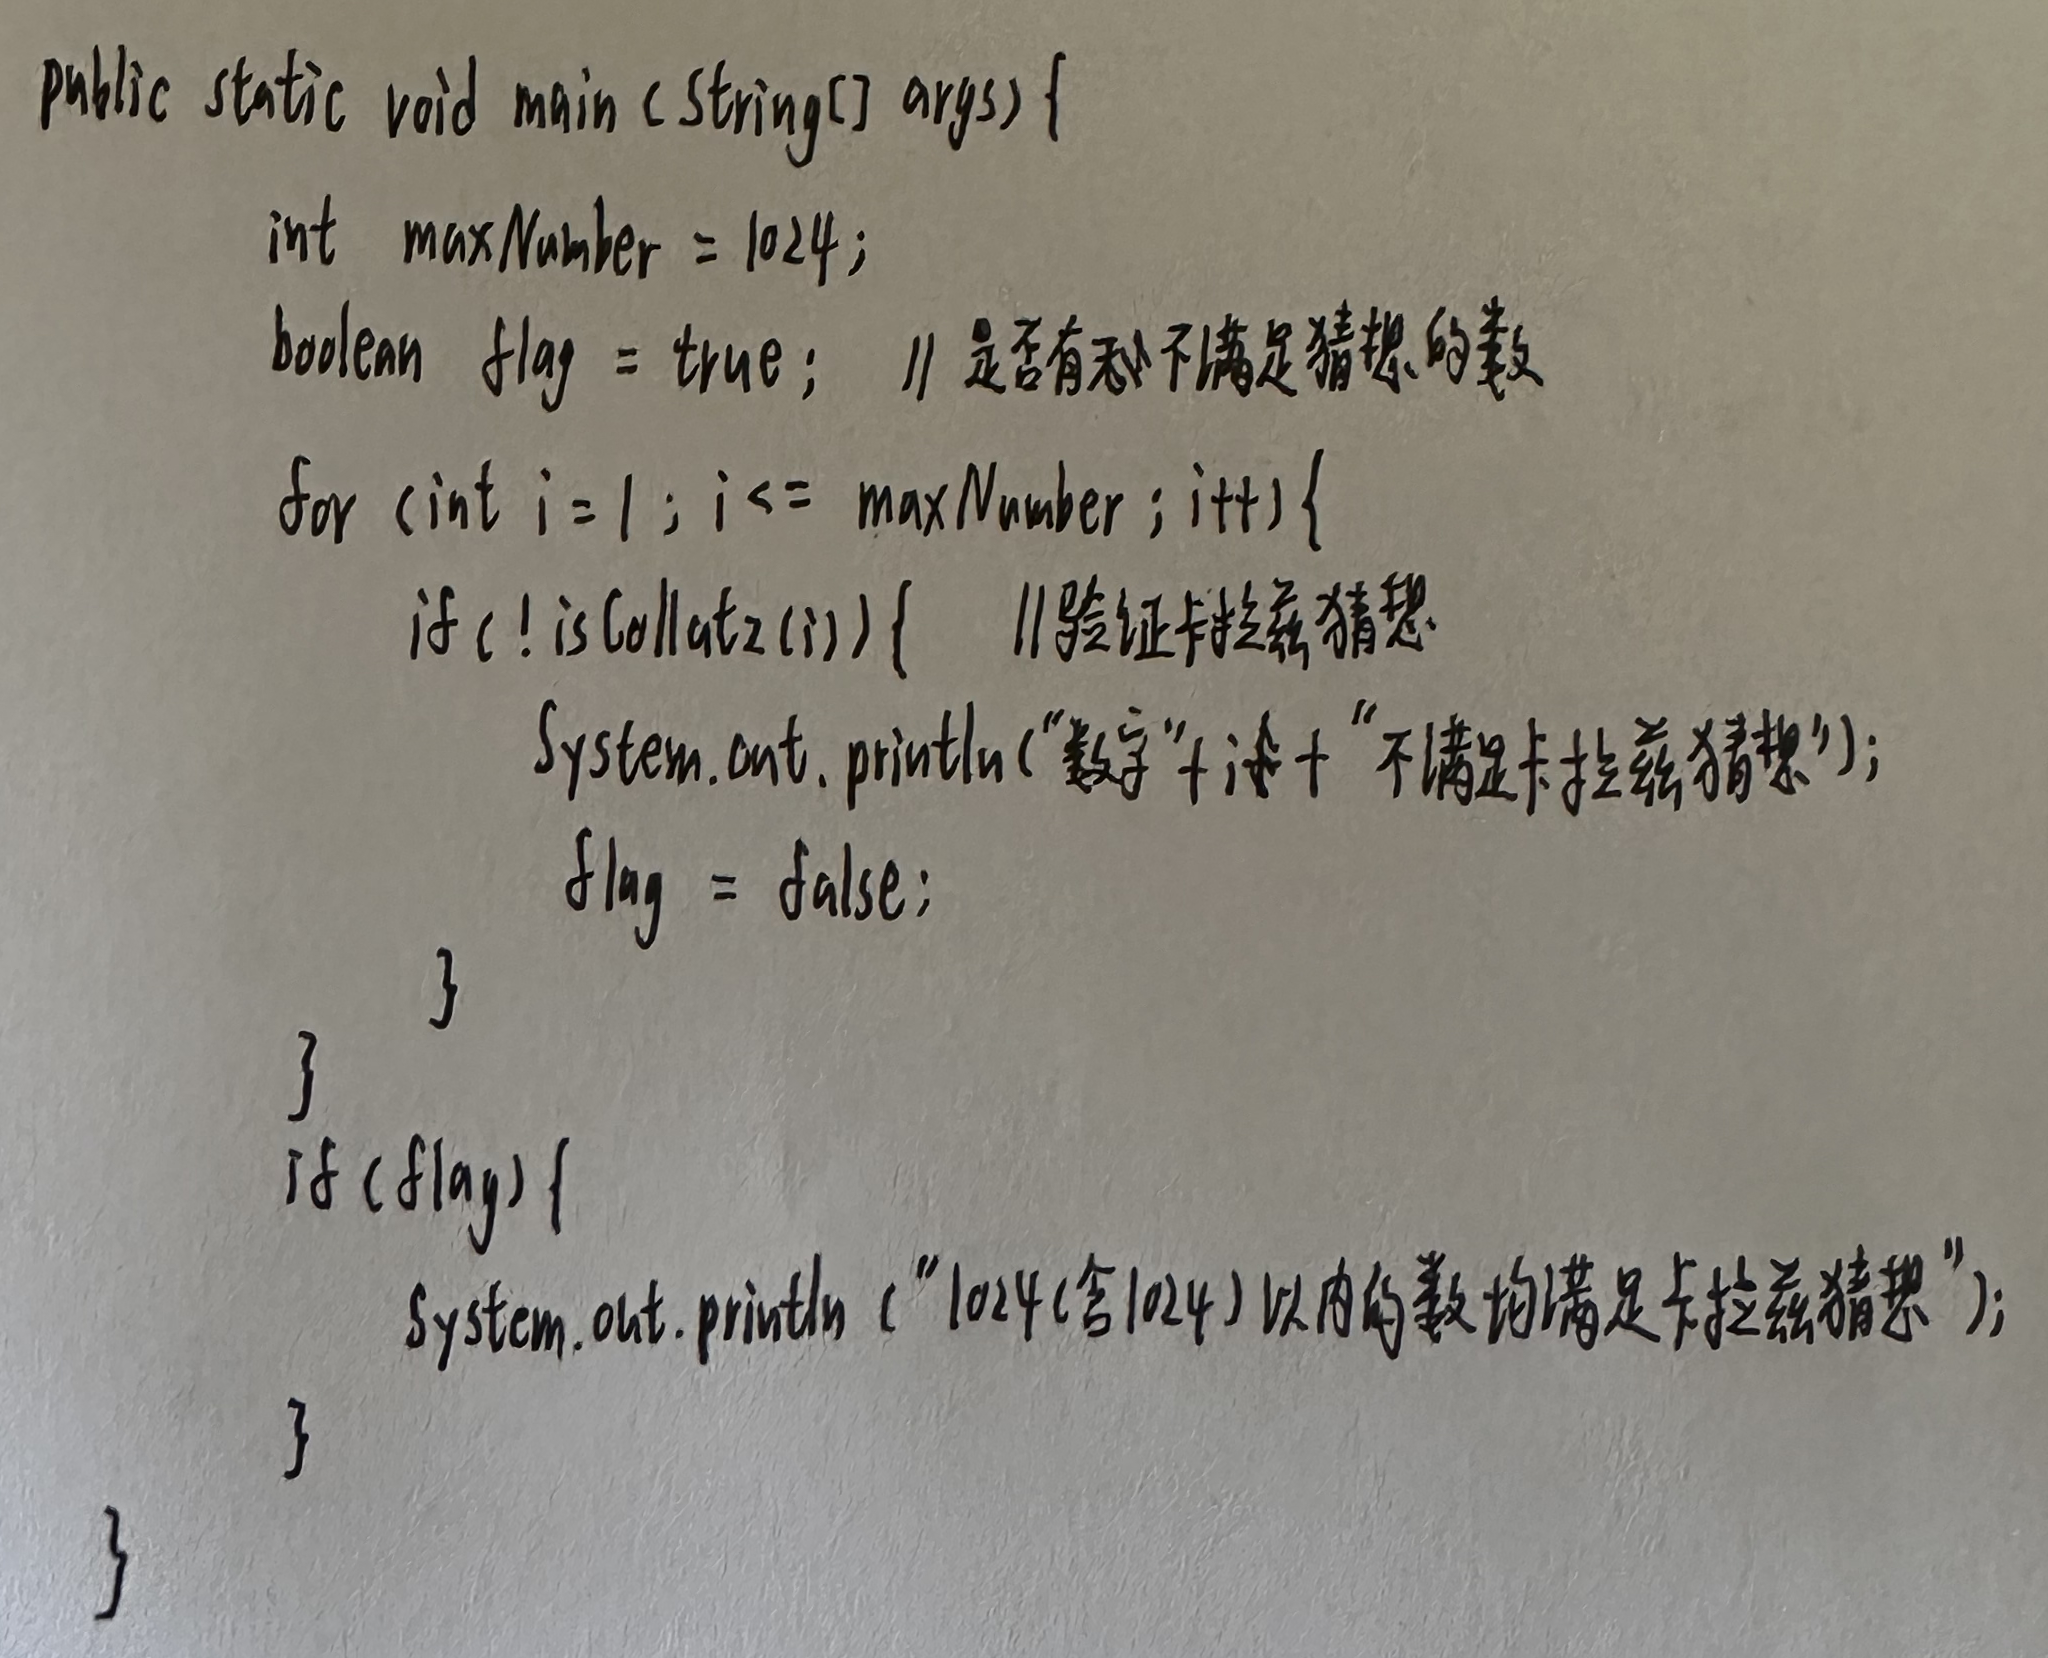 public static void main (String[] args) {
int maxNumber = 1024;
boolean flag = true; // 是否有不满足猜想的数
for (int i = 1; i <= maxNumber; i++) {
if (! isCollatz(i)) { //验证卡拉兹猜想
System.out.println("数字" + i + "不满足卡拉兹猜想");
flag = false;
}
}
if (flag) {
System.out.println ("1024(含1024)以内的数均满足卡拉兹猜想");
}
}